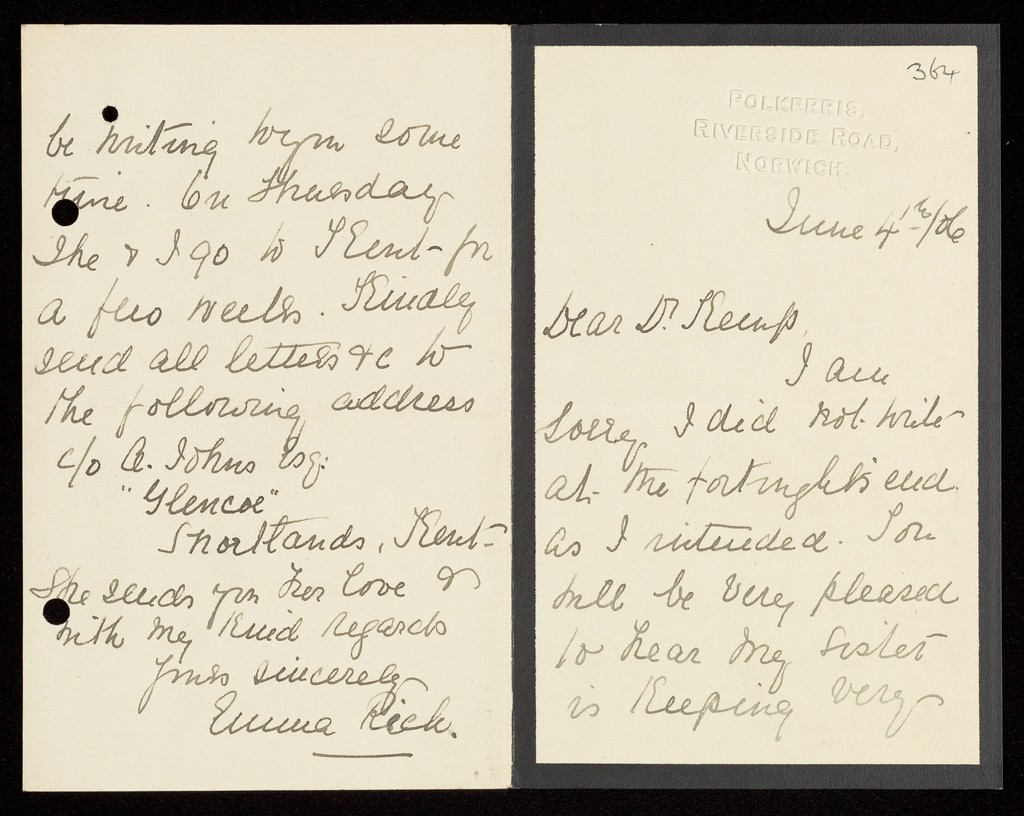 364
POLKERRIS,
RIVERSIDE ROAD,
NORWICH.
June 4th/06
Dear Dr. Kemp,
I am
sorry I did not write
at the fortnight's end
as I intended. You
will be very pleased
to hear my sister
is keeping very
be writing to you some
time. On Thursday
she & I go to Kent for
a few weeks. Kindly
send all letters &c to
the following address
c/o A. Johns Esq:
"Glencoe"
Shortlands, Kent
She sends you her love &
with my kind regards
Yours sincerely
Emma Rich.